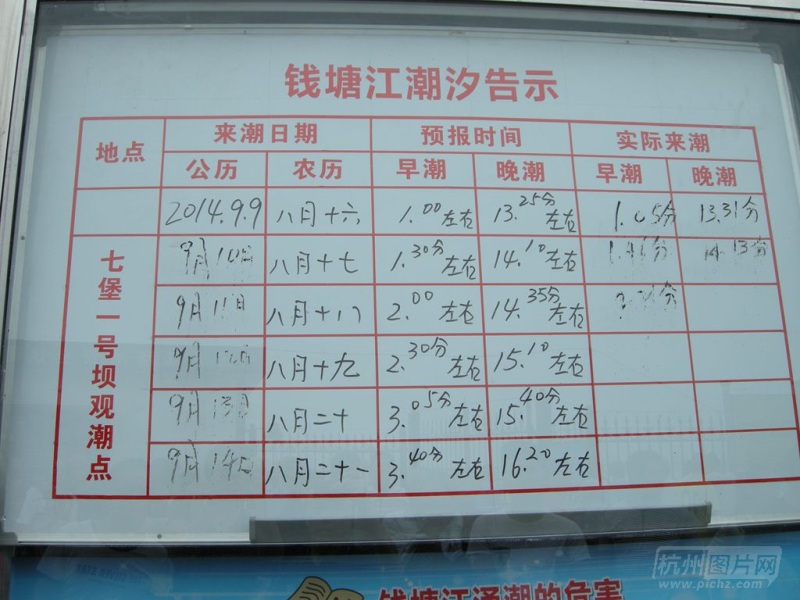 钱塘江潮汐告示
地点 来潮日期 预报时间 实际来潮
公历 农历 早潮 晚潮 早潮 晚潮
2014.9.9 八月十六 1.00左右 13.25分左右 1.05分 13.31分
七堡一号坝观潮点
9月10日 八月十七 1.30分左右 14.10左右 14.13分
9月11日 八月十八 2.00左右 14.35分左右
9月12日 八月十九 2.30分左右 15.10左右
9月13日 八月二十 3.05分左右 15.40分左右
9月14日 八月二十一 3.40分左右 16.20左右
钱塘江涌潮的危害
杭州图片网
www.pichz.com